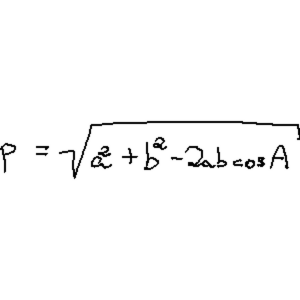 p = √(a² + b² - 2ab cos A)